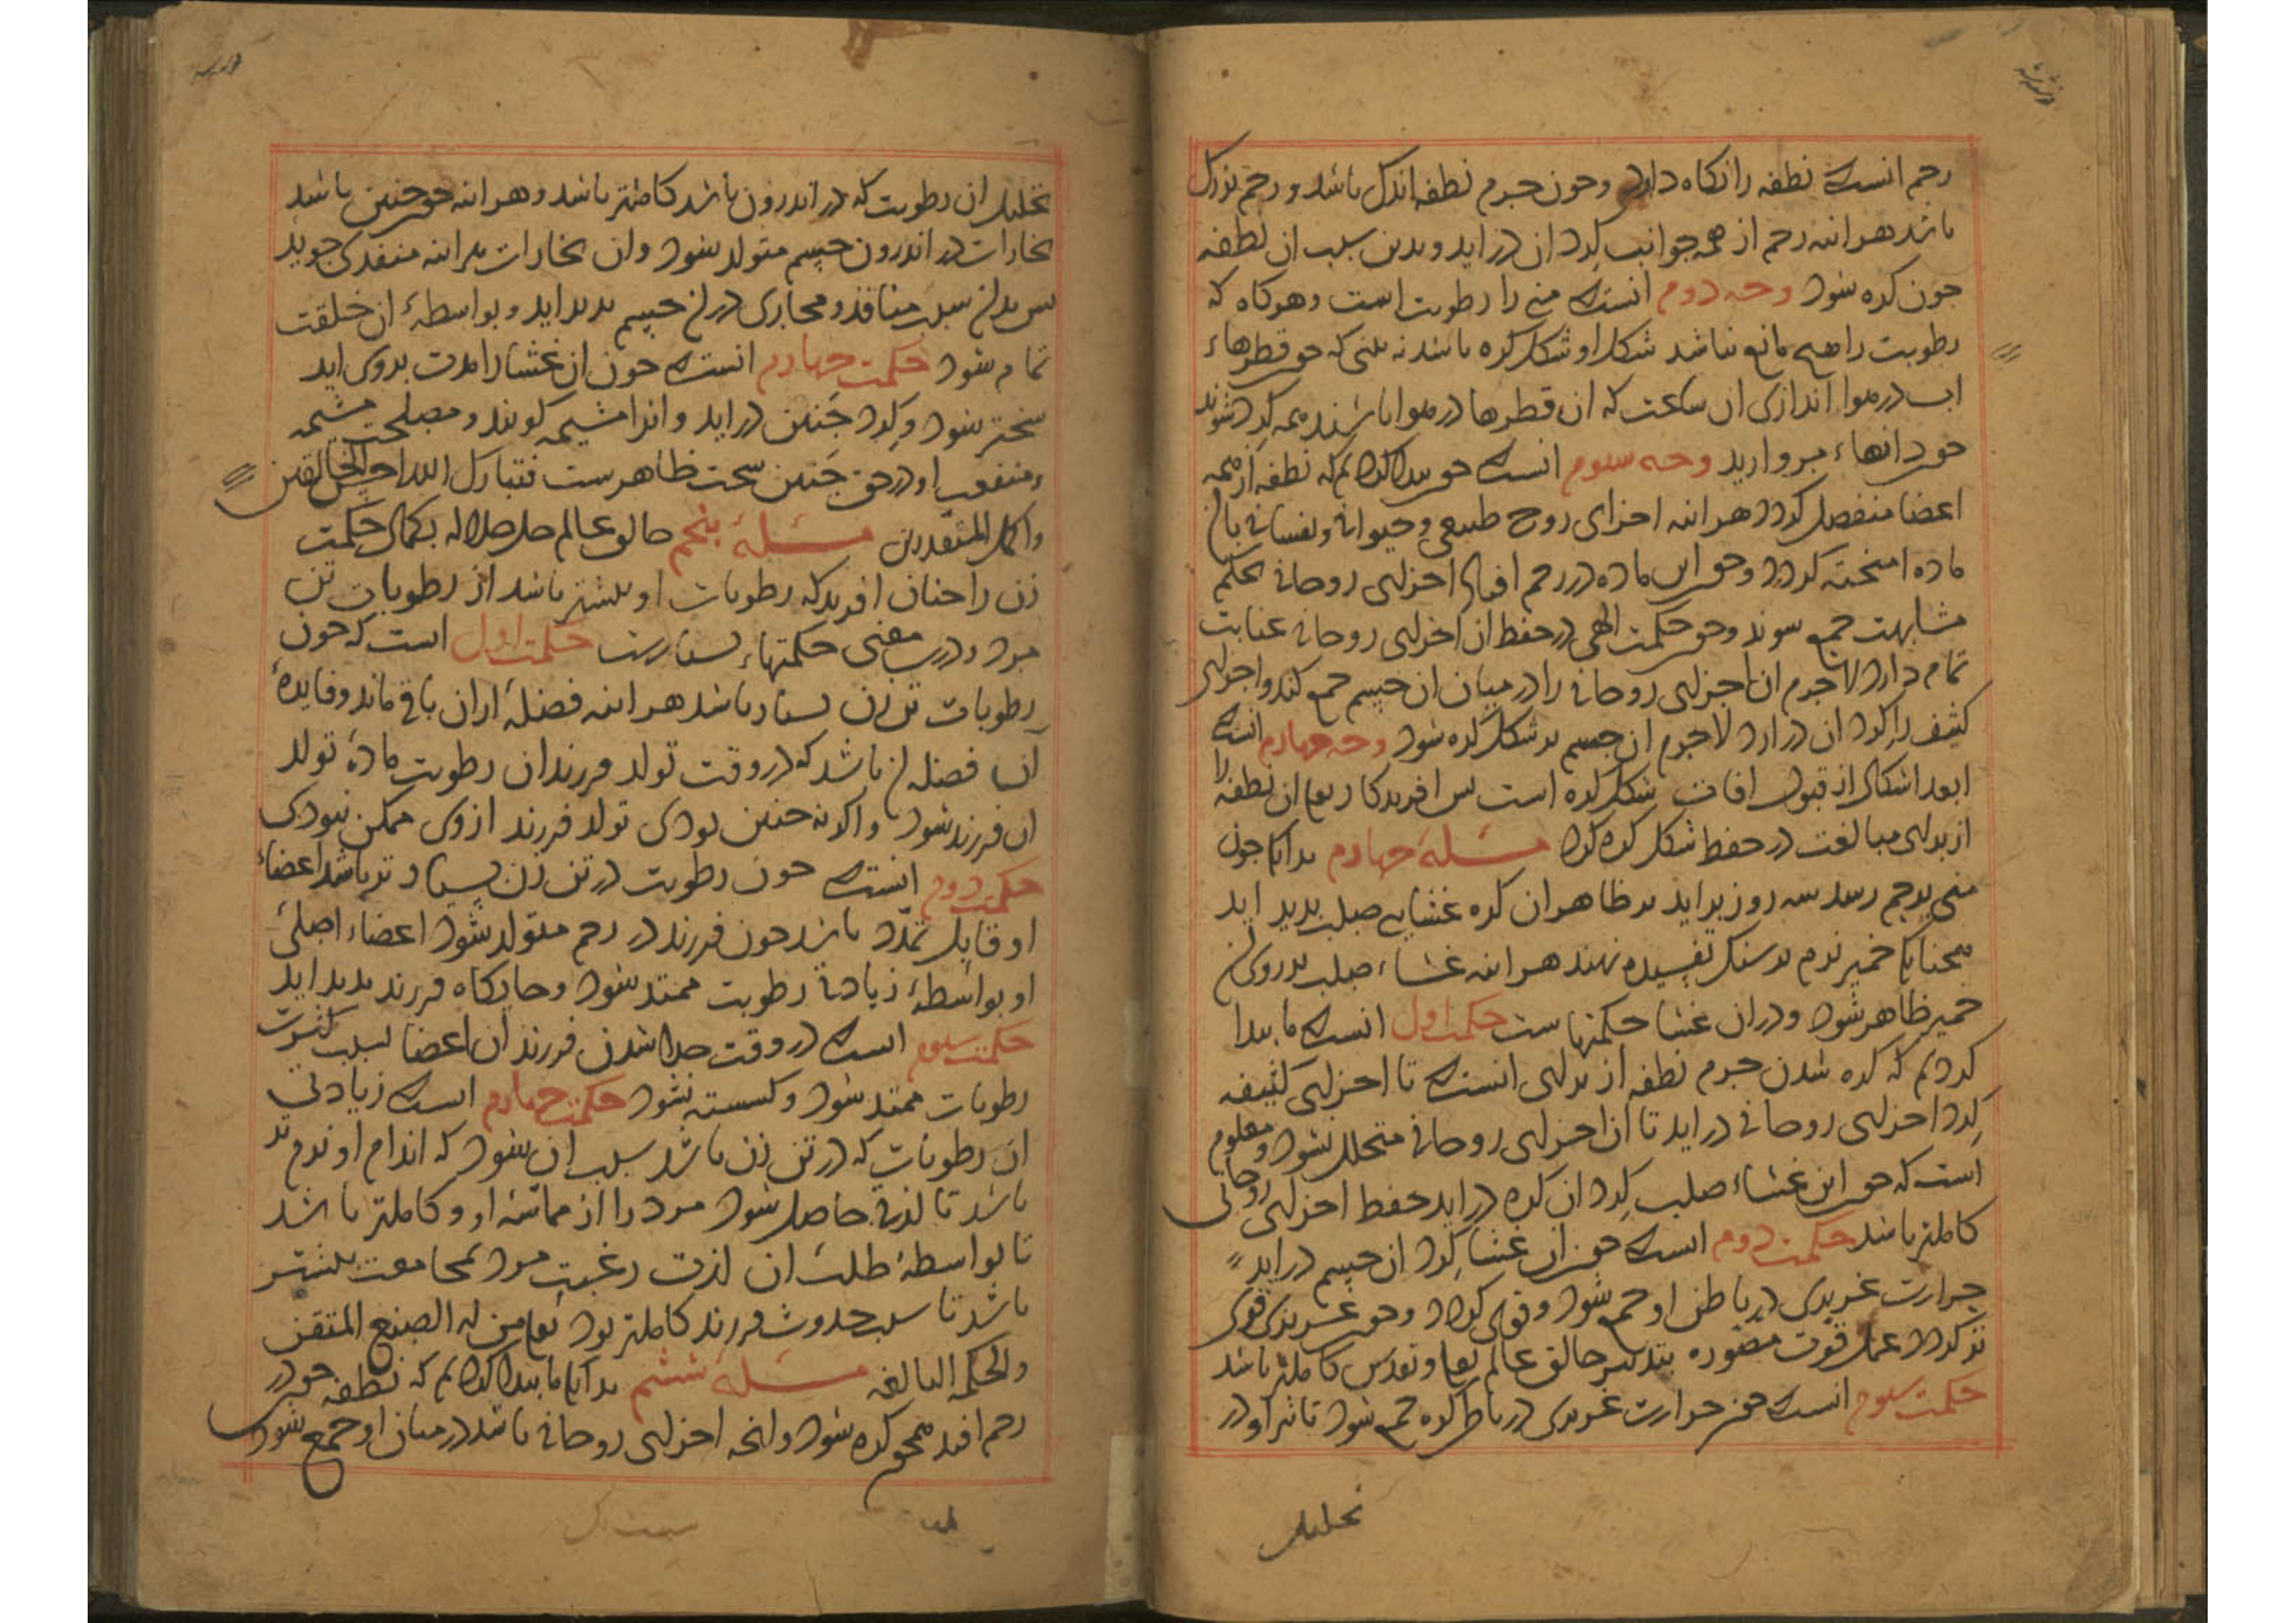 رحم انست که نطفه را نکاه دارد و حون جرم نطفه اندک باشد و رحم بزرک
باشد هراینه رحم از همه جوانب کرد ان در اید و بدین سبب ان نطفه
جون کره شود وجه دوم انست که منی را رطوبت است و هرکاه که
رطوبت را هیچ مانع نباشد شکل او شکل کره باشد نه بینی که حون قطرهاء
اب در هوا اندازی ان ساعت که ان قطرها در هوا باشند همه کرد شوند
حون دانهاء مروارید وجه سوم انست که حون بیدا کردیم که نطفه از همه
اعضا منفصل کردد هراینه اجزای روح طبیعی و حیوانی و نفسانی با ان
ماده امیخته کردد و حون این ماده در رحم افتد اجزای روحانی بحکم
مشابهت جمع شوند و حون حکمت الهی در حفظ ان اجزای روحانی عنایت
تمام دارد لاجرم ان اجزای روحانی را در میان ان جسم جمع کند و اجزای
کثیف را کرد ان در ارد لاجرم ان جسم بر شکل کره شود وجه چهارم انست که
ابعد اشکال از قبول افات شکل کره است بس افریدکار تعالی ان نطفه را
از برای مبالغت در حفظ شکل کره کرد مسئلهٔ چهارم بدانک جون
منی برحم رسد سه روز براید بر ظاهر ان کره غشایی صلب بدید اید
همجنانک خمیر نرم بر سنک تفسیده نهند هراینه غشاء صلب بر روی ان
خمیر ظاهر شود و در ان غشا حکمتهاست حکمت اول انست که ما بیدا
کردیم که کره شدن جرم نطفه از برای انست که تا اجزای کثیفه
کرد اجزای روحانی در اید تا ان اجزای روحانی متحلل نشود و معلوم
است که حون این غشاء صلب کرد ان کره در اید حفظ اجزای روحانی
کاملتر باشد حکمت دوم انست که حون ان غشا کرد ان جسم در اید
حرارت غریزی در باطن او جمع شود و قوی کردد و حون غریزی قوی
تر کردد عمل قوت مصوره بتدبیر خالق عالم تعالی و تقدس کاملتر باشد
حکمت سوم انست که حون حرارت غریزی در باطن کره جمع شود تاثیر او در
تحلیل
تحلیل ان رطوبت که در اندرون باشد کاملتر باشد و هراینه حون جنین باشد
بخارات در اندرون جسم متولد شود وان بخارات هراینه منفذی جوید
بس بدان سبب منافذ و مجاری در ان جسم بدید اید و بواسطهٔ ان خلقت
تمام شود حکمت چهارم انست که حون ان غشا را مدت بروی اید
سختر شود و کرد جَنین در اید و انرا مشیمه کویند و مصلحت مشیمه
و منفعت او در حق جَنین سخت ظاهرست فتبارک الله احسن الخالقین
و اکمل المقدرین مسئلهٔ بنجم خالق عالم جل جلاله بکمال حکمت
زن را جنان افرید که رطوبات او بیشتر باشد از رطوبات تن
مرد و درین معنی حکمتهاء بسیارست حکمت اول است که حون
رطوبات تن زن بسیار باشد هراینه فضلهٔ از ان باقی ماند و فایدهٔ
ان فضله ان باشد که در وقت تولد فرزند ان رطوبت مادهٔ تولد
ان فرزند شود و اکر نه جنین بودی تولد فرزند از وی ممکن نبودی
حکمت دوم انست که حون رطوبت در تن زن بسیار تر باشد اعضاء
او قابل تمدّد باشد حون فرزند در رحم متولد شود اعضاء اصلی
او بواسطهٔ زیادتی رطوبت ممتد شود و جایکاه فرزند بدید اید
حکمت سوم انست که در وقت جدا شدن فرزند ان اعضا بسبب کثرت
رطوبات ممتد شود و کسسته نشود حکمت چهارم انست که زیادتی
ان رطوبات که در تن زن باشد سبب ان شود که اندام او نرم تر
باشد تا لذتی حاصل شود مرد را از مماسّهٔ او و کاملتر باشد
تا بواسطهٔ طلب ان لذت رغبت مرد بمجامعت بیشتر
باشد تا سبب حدوث فرزند کاملتر بود تعالی من له الصنع المتقن
والحکمه البالغه مسئلهٔ ششم بدانک ما بیدا کردیم که نطفه حون در
رحم افتد همجو کره شود و انجه اجزای روحانی باشد در میان او جمع شود